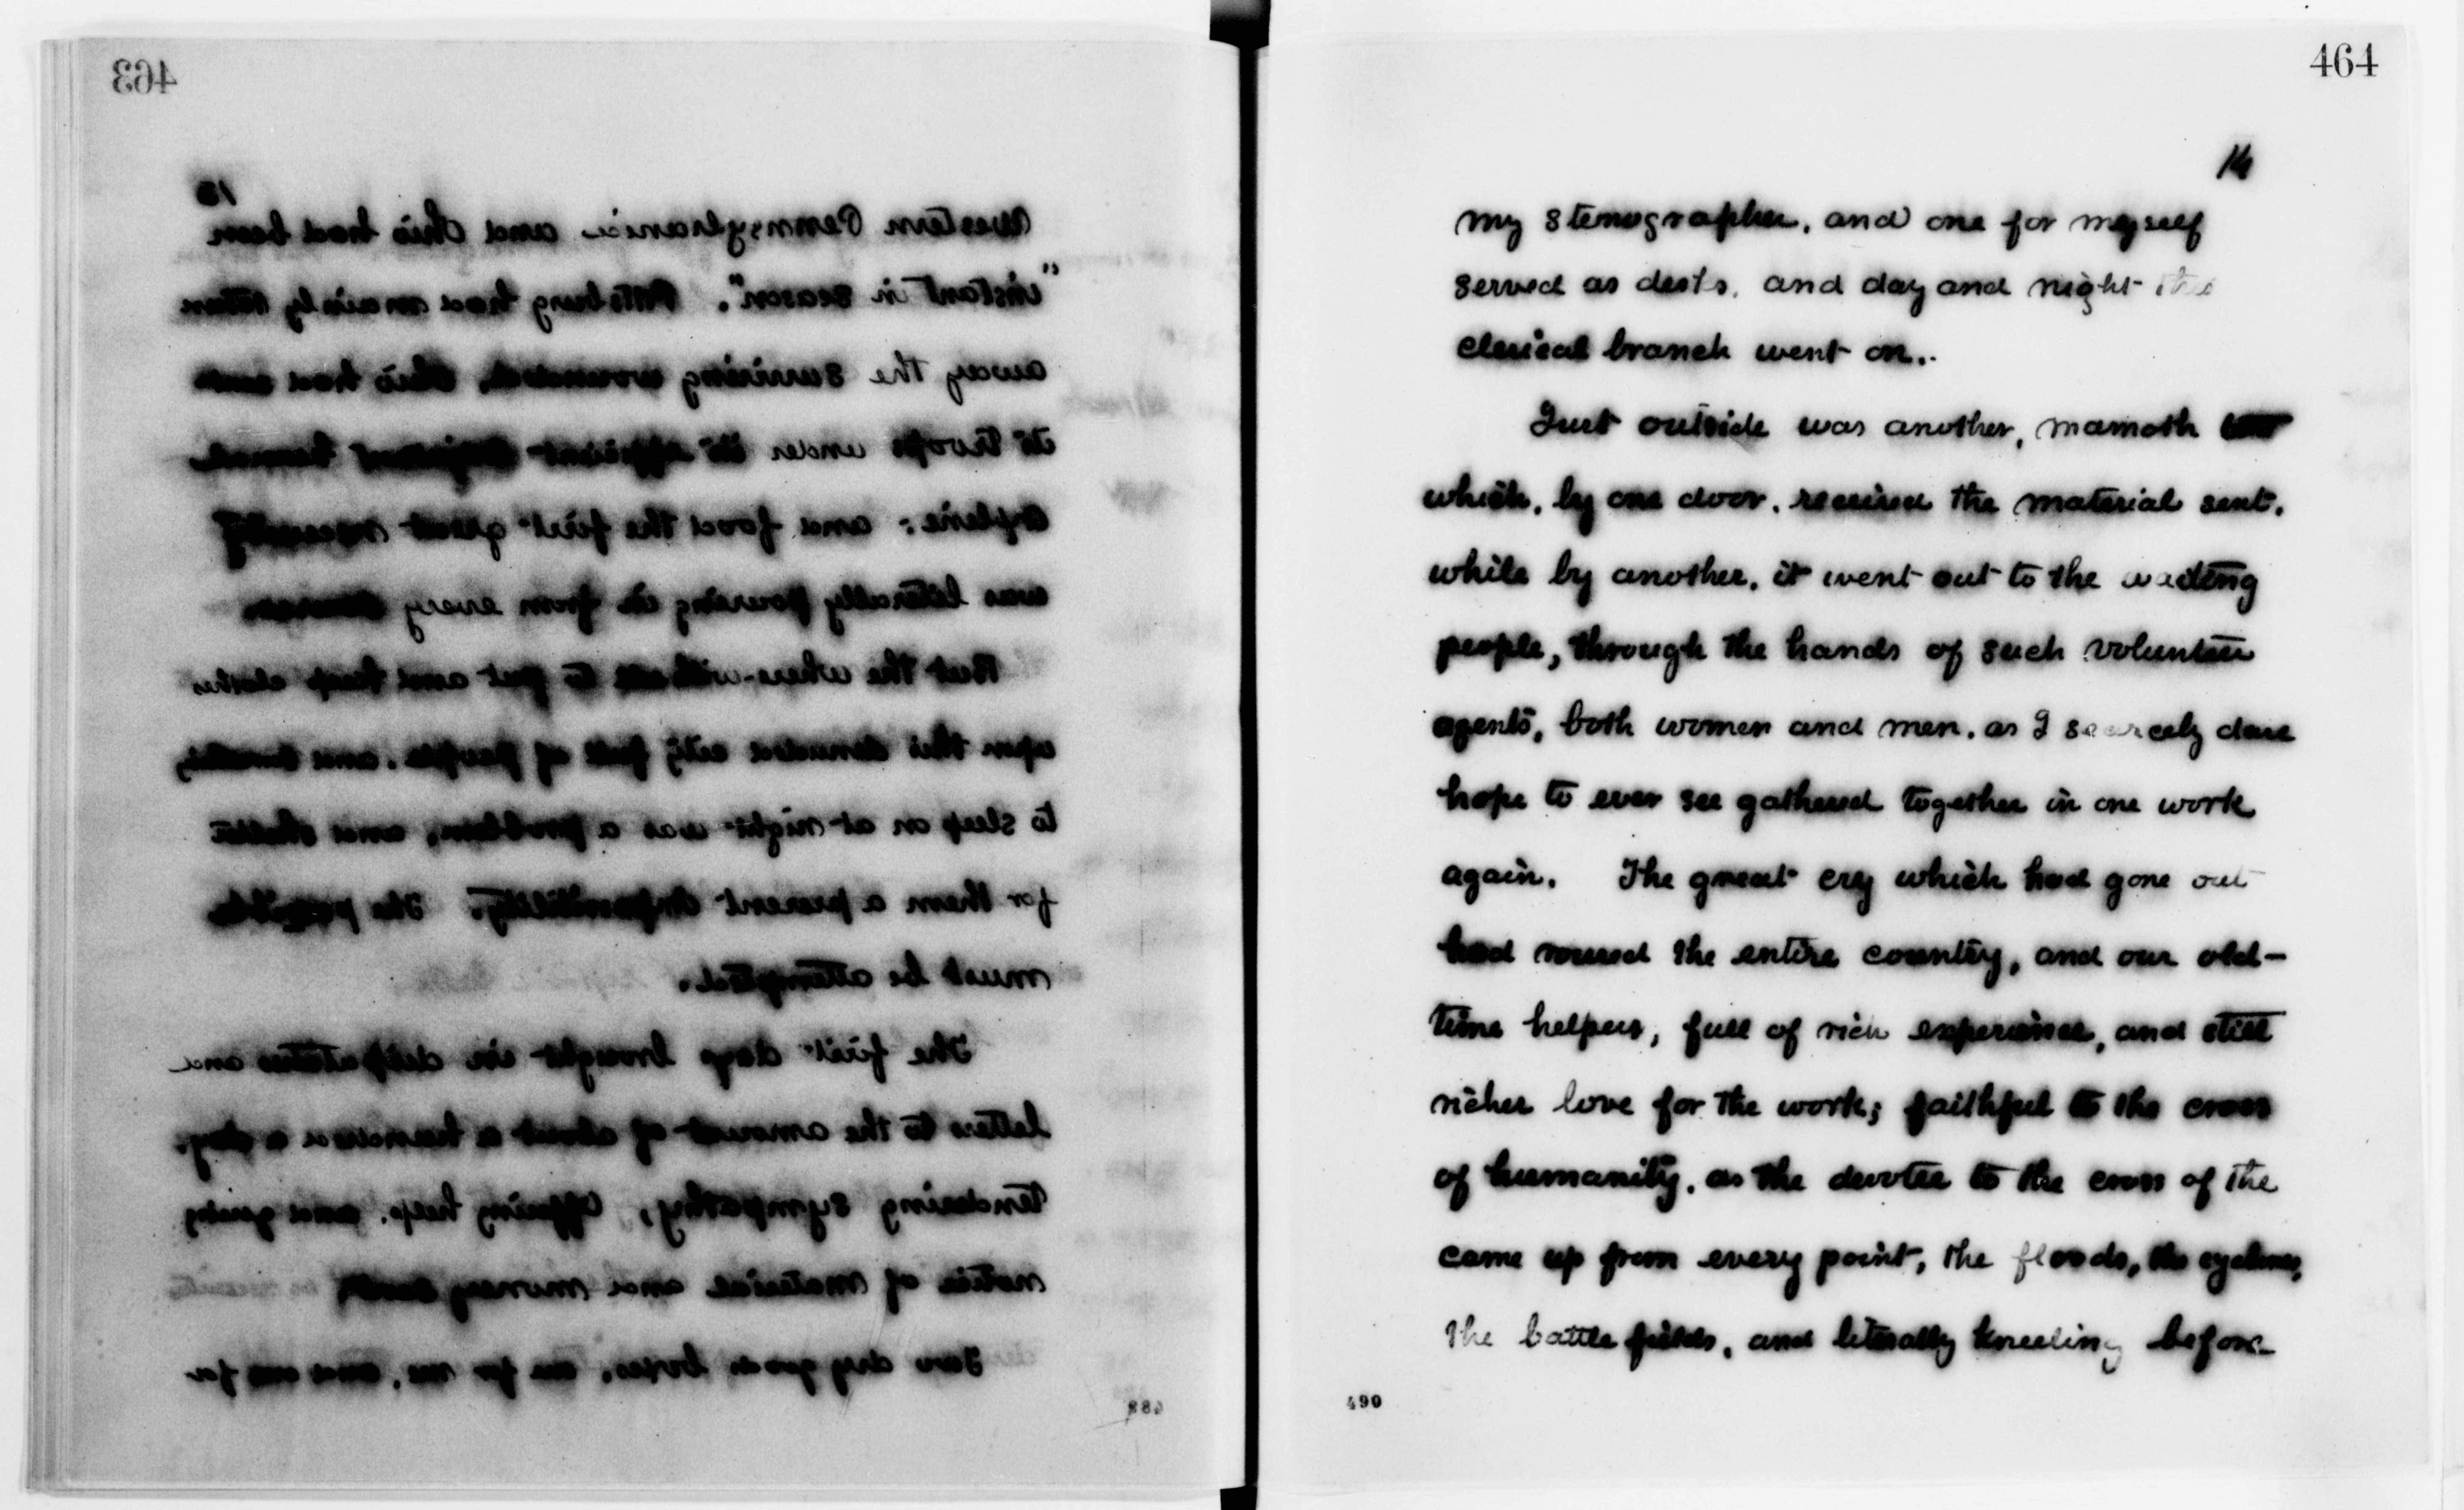 463
13
Western Pennsylvania and Ohio had been
"instant in season". Pittsburg had mainly taken
away the surviving wounded, Ohio had sent
its troops under its efficient
and food the first great necessity
was literally pouring in from every
But the where-with-all to put and keep clothes
upon this denuded city full of people, and
to sleep on at night was a problem, and shelter
for them a present impossibility. The possible
must be attempted.
The first days brought in despatches and
letters to the amount of about a hundred a day.
tendering sympathy, offering help, and giving
notice of material and money
Two dry goods boxes, one for me, and one for
488
464
14
my stenographer, and one for myself
served as desks, and day and night the
clerical branch went on.
Just outside was another, mamoth
which, by one door, received the material sent,
while by another, it went out to the waiting
people, through the hands of such volunteer
agents, both women and men, as I scarcely dare
hope to ever see gathered together in one work
again. The great cry which had gone out
had roused the entire country, and our old-
time helpers, full of rich experience, and still
richer love for the work; faithful to the cross
of humanity, as the devotee to the cross of the
came up from every point, the floods, the cyclones,
the battle fields, and literally kneeling before
490